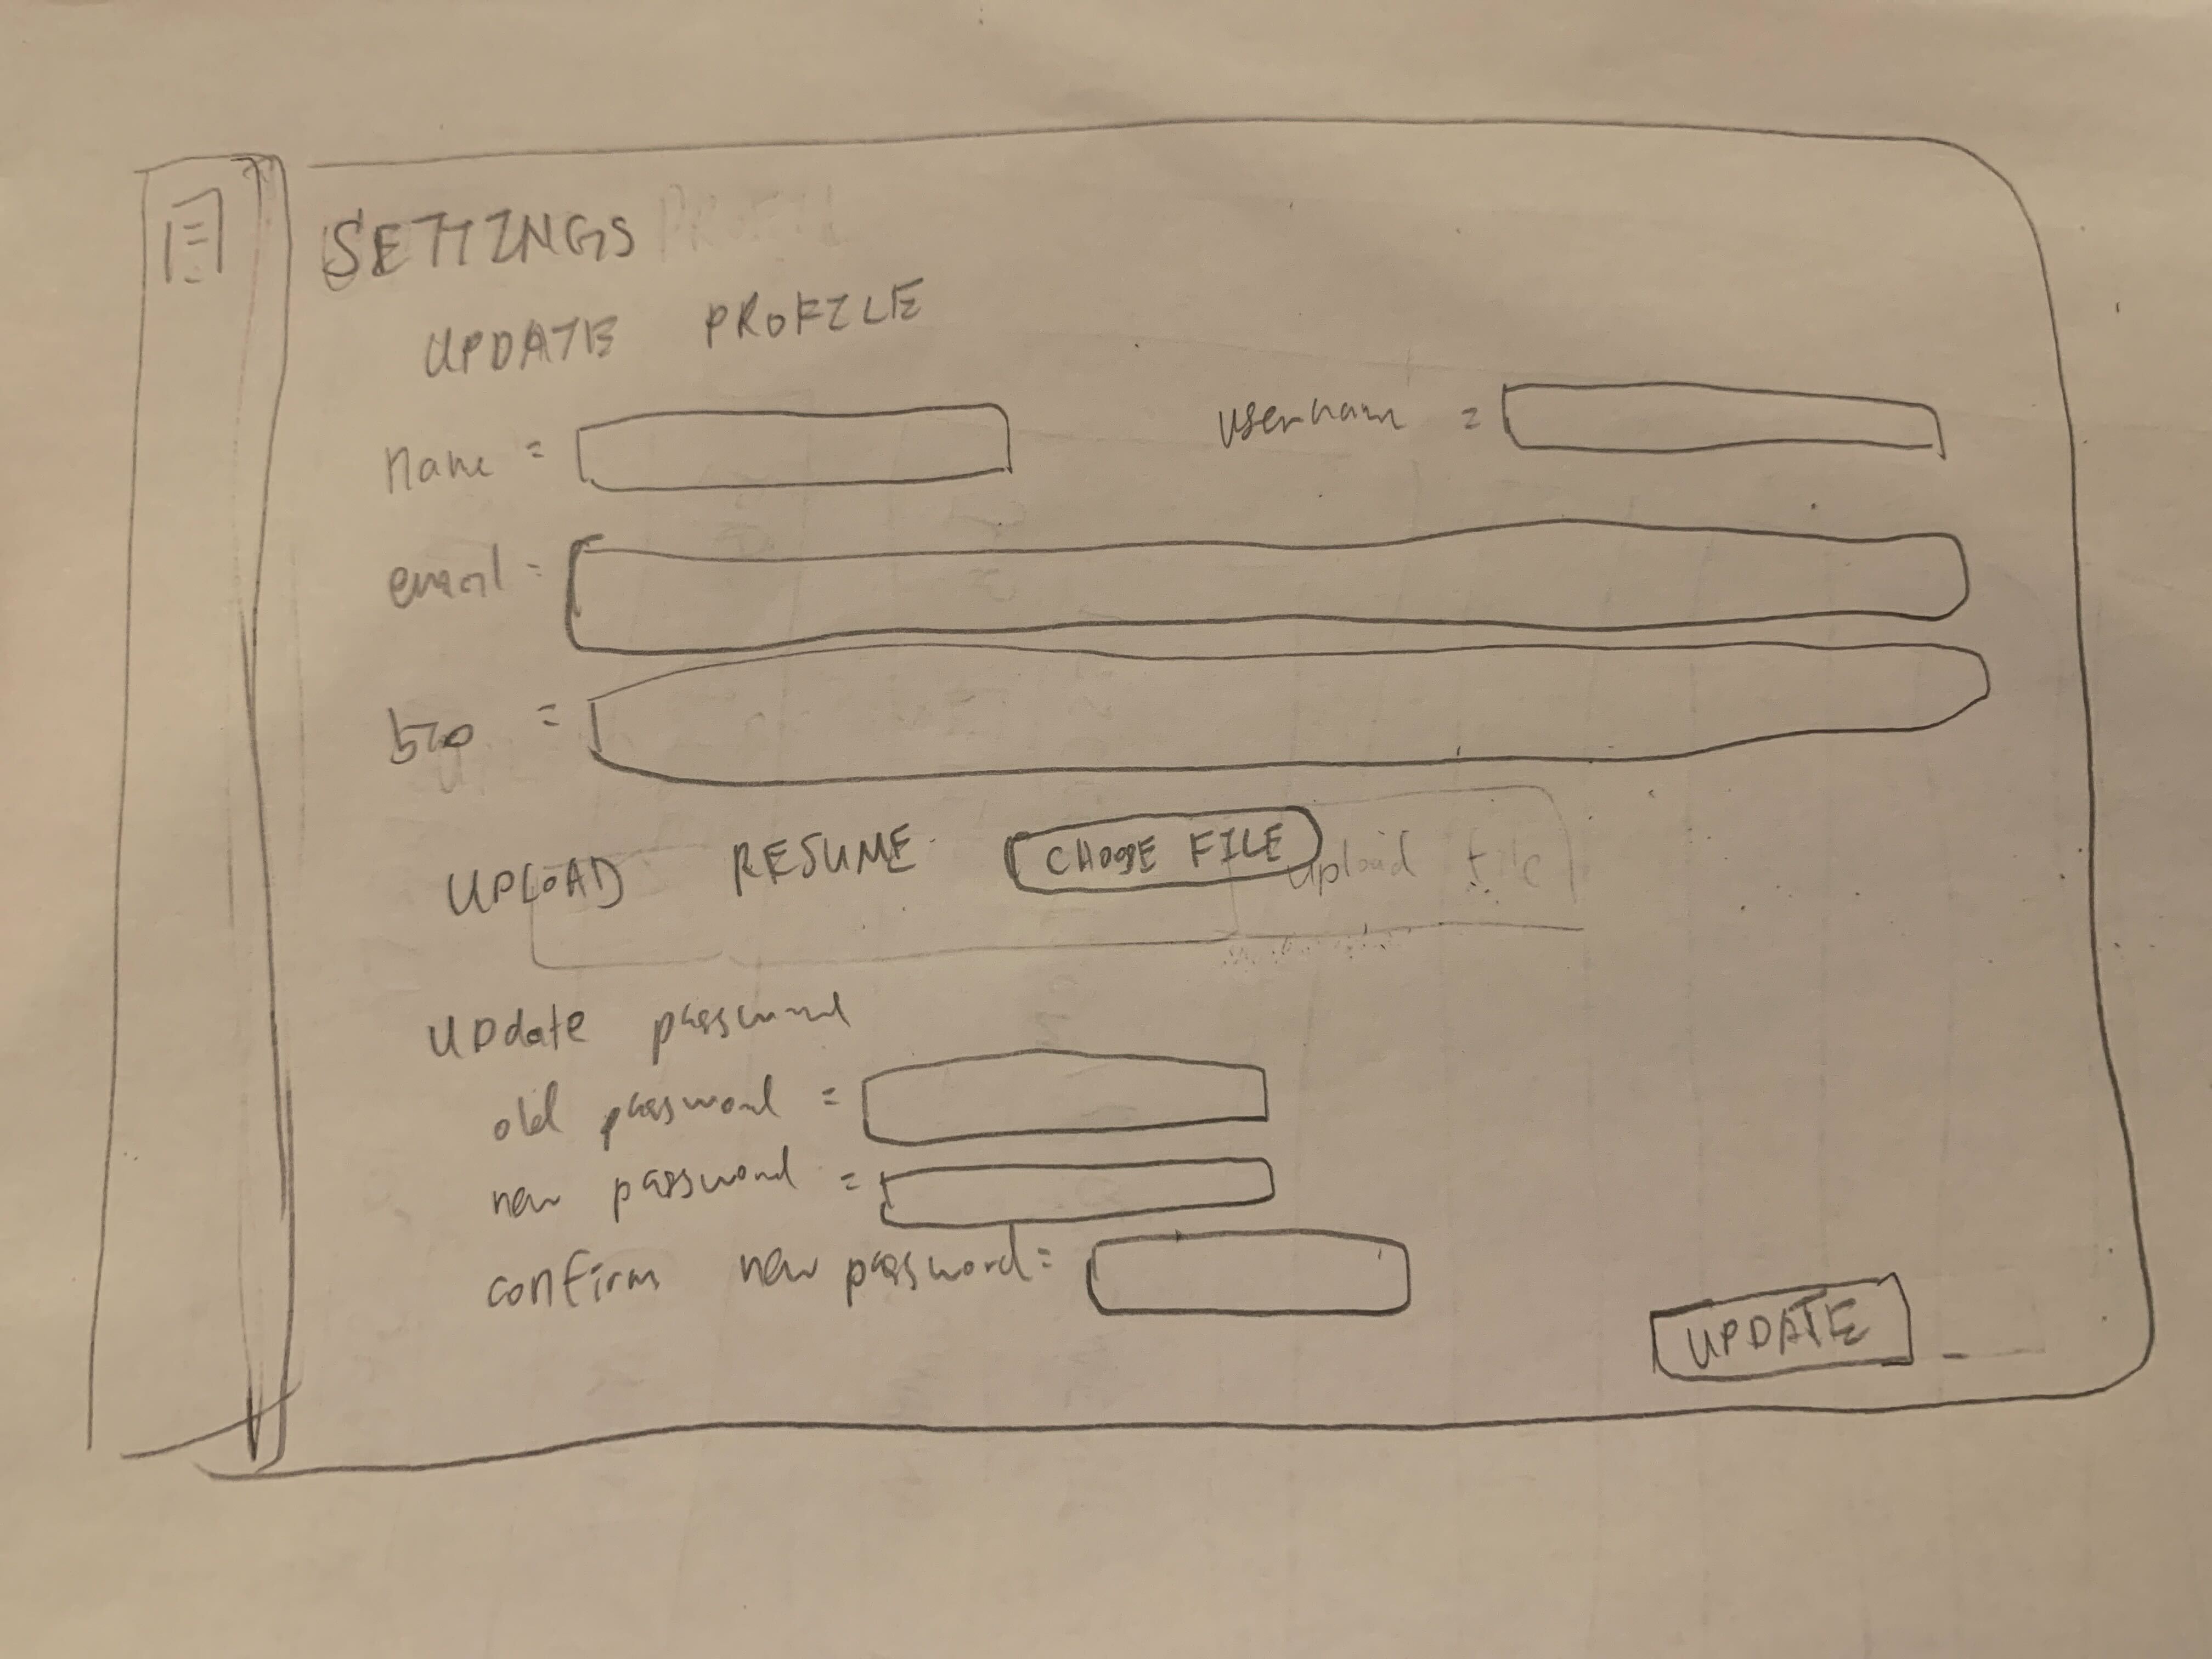 SETTINGS
UPDATE PROFILE
name = usernam =
email =
bio =
UPLOAD RESUME CHOOSE FILE upload file
update password
old password =
new password =
confirm new password =
UPDATE